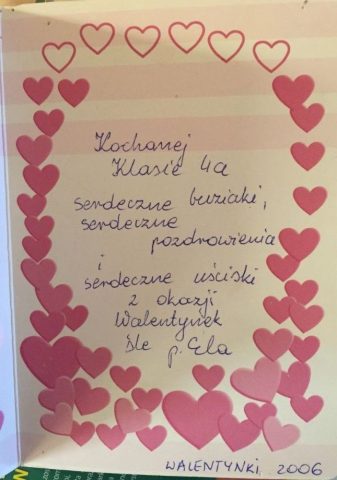 Kochanej
Klasie 4a
serdeczne buziaki,
serdeczne
pozdrowienia
i
serdeczne uściski
z okazji
Walentynek
śle
p. Ela
WALENTYNKI 2006